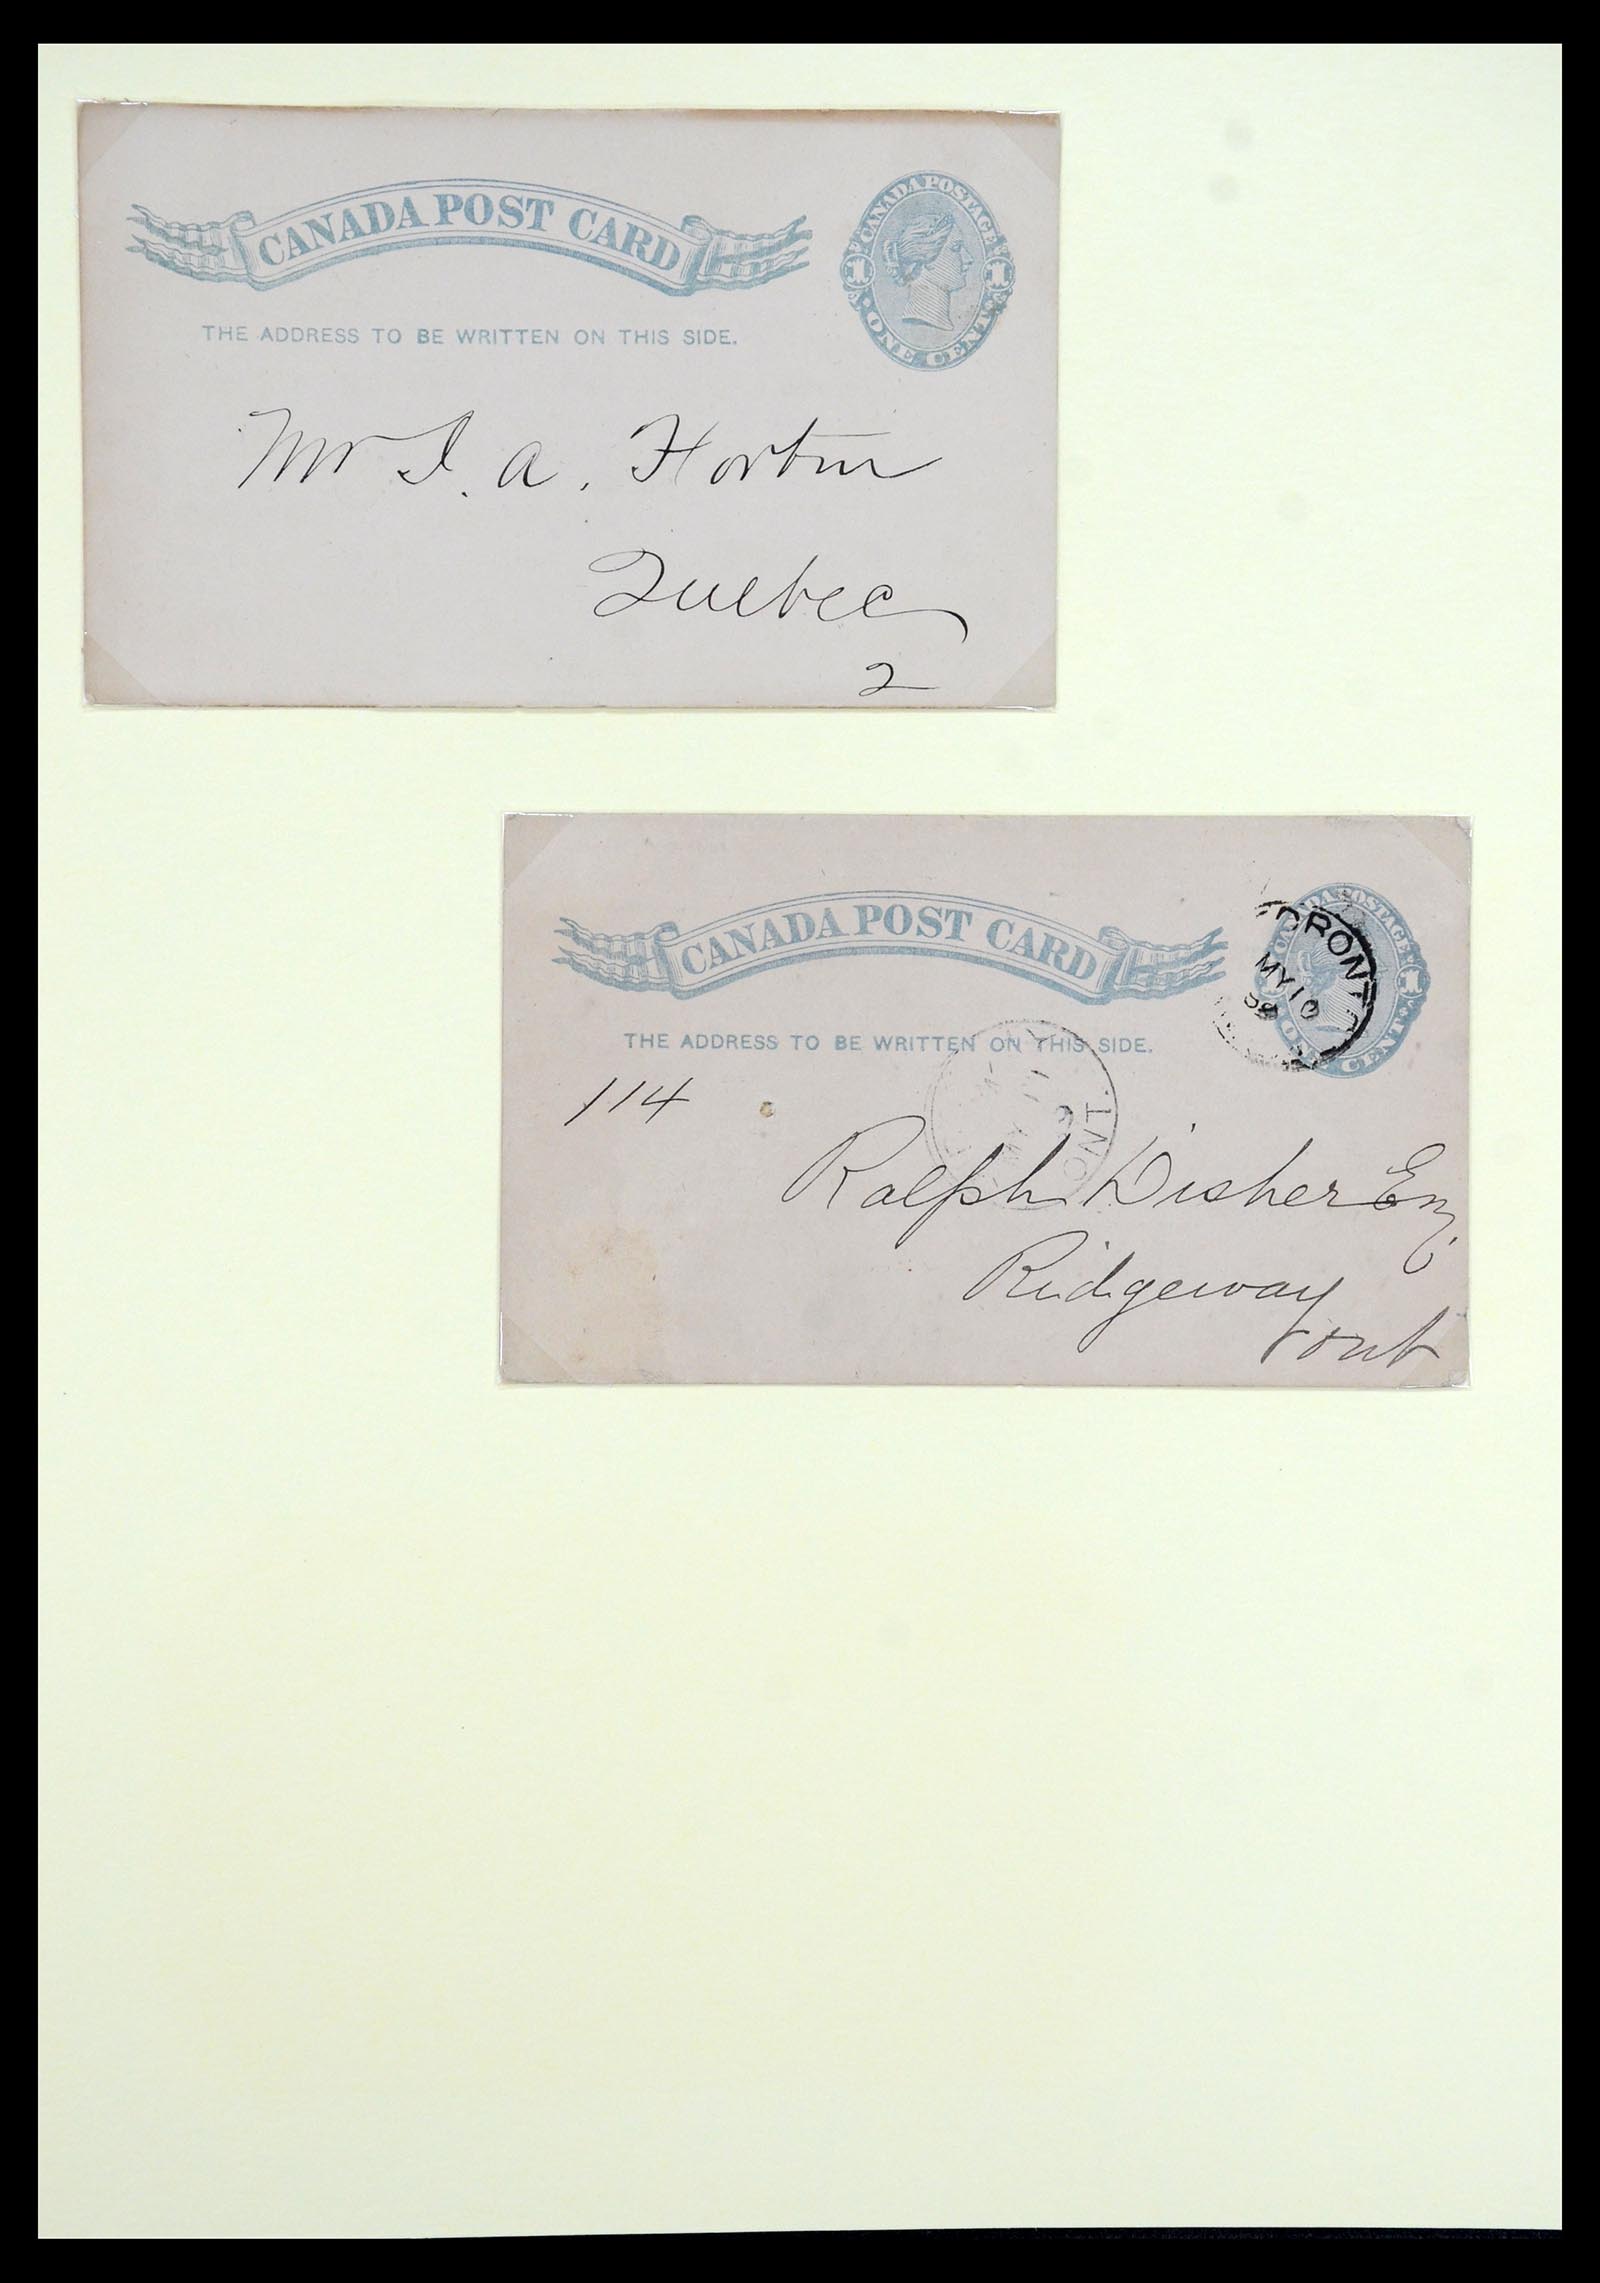 CANADA POST CARD
CANADA POSTAGE
1 1
ONE CENT
THE ADDRESS TO BE WRITTEN ON THIS SIDE.
Mr I. A. Horton
Quebec
2
CANADA POST CARD
CANADA POSTAGE
1
ONE CENT
TORONTO
MY 10
THE ADDRESS TO BE WRITTEN ON THIS SIDE.
ONT.
MY 11
114
Ralph Disher Esq
Ridgeway
Ont